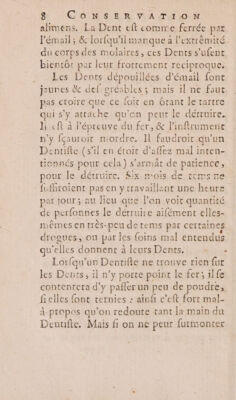 8 CONSERVATION
alimens. La Dent est comme ferrée par
l'émail ; & lorsqu'il manque à l'extrêmité
du corps des molaires, ces Dents s'usent
bientôt par leur frottement reciproque.
Les Dents dépouillées d'émail sont
jaunes & desgréables ; mais il ne faut
pas croire que ce soit en ôtant le tartre
qui s'y attache qu'on peut le détruire.
Il est à l'épreuve du fer, & l'instrument
n'y sçauroit mordre. Il faudroit qu'un
Dentiste (s'il en étoit d'assez mal inten-
tionnés pour cela) s'armât de patience,
pour le détruire. Six mois de tems ne
suffiroient pas en y travaillant une heure
par jour ; au lieu que l'on voit quantité
de personnes le détruire aisément elles-
mêmes en très-peu de tems par certaines
drogues, ou par les soins mal entendus
qu'elles donnent à leurs Dents.
Lorsqu'un Dentiste ne trouve rien sur
les Dents, il n'y porte point le fer ; il se
contentera d'y passer un peu de poudre,
si elles sont ternies : ainsi c'est fort mal-
à propos qu'on redoute tant la main du
Dentiste. Mais si on ne peut surmonter